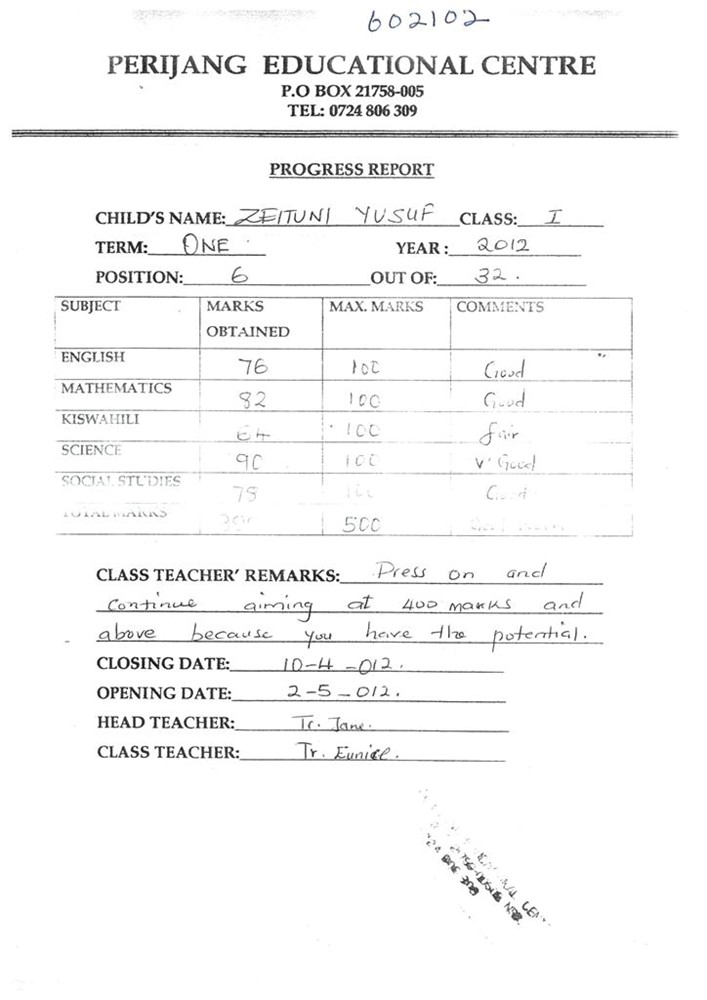 602102
PERIJANG EDUCATIONAL CENTRE
P.O BOX 21758-005
TEL: 0724 806 309
PROGRESS REPORT
CHILD'S NAME: ZEITUNI YUSUF CLASS: I
TERM: ONE YEAR: 2012
POSITION: 6 OUT OF: 32.
SUBJECT MARKS OBTAINED MAX. MARKS COMMENTS
ENGLISH 76 100 Good
MATHEMATICS 82 100 Good
KISWAHILI 64 100 fair
SCIENCE 90 100 V. Good
SOCIAL STUDIES 78 100 Good
TOTAL MARKS 500
CLASS TEACHER' REMARKS: Press on and
continue aiming at 400 marks and
above because you have the potential.
CLOSING DATE: 10-4-012.
OPENING DATE: 2-5-012.
HEAD TEACHER: Tr. Jane.
CLASS TEACHER: Tr. Eunice.